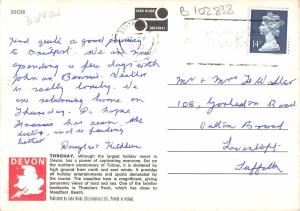 2DC26
DEVON
B102838
Had quite a good journey
to Bristol. We are now
spending a few days with
John and Bonnie. Weather
is really lovely. We
are returning home on
Thursday. Do hope
has seen the
doctor, and is feeling
better.
Douglas & Kathleen
14P
Mr & Mrs D. Walker
105, Gorleston Road
Oulton Broad
Lowestoft
Suffolk
DEVON
TORQUAY, although the largest holiday resort in
Devon, has a power of captivating everyone. Set on
the northern promontory of Torbay, it is sheltered by
high ground from north and east winds. It provides
all holiday entertainments and sports demanded by
the tourist. The coastline here is magnificent, giving
panoramic views of land and sea. One of the familiar
landmarks is Thatchers Rock, which lies close to
Meadfoot Beach.